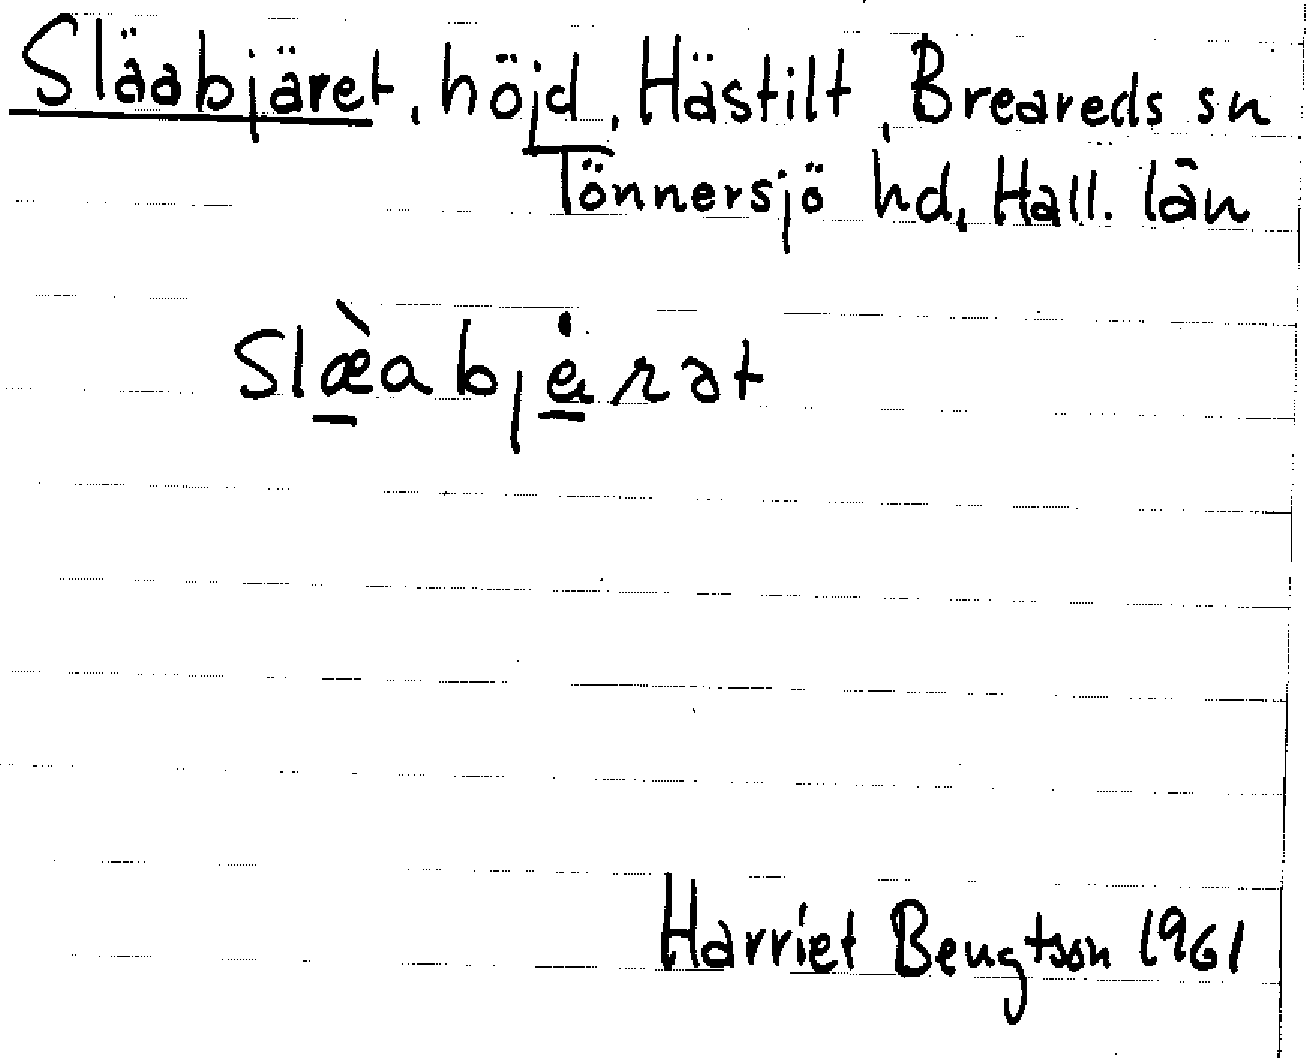 Slääbjäret, höjd, Hästilt, Breareds sn
Tönnersjö hd, Hall. län
Harriet Bengtson 1961